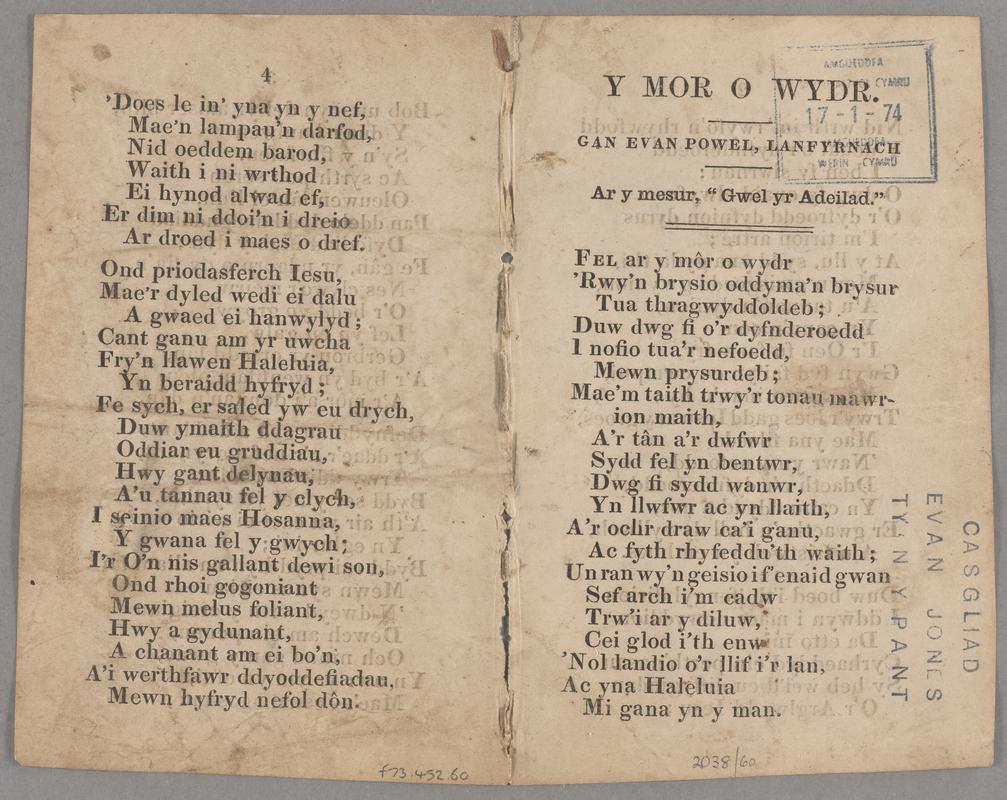 4
'Does le in' yna yn y nef,
Mae'n lampau'n darfod,
Nid oeddem barod,
Waith i ni wrthod
Ei hynod alwad ef,
Er dim ni ddoi'n i dreio
Ar droed i maes o dref.
Ond priodasferch Iesu,
Mae'r dyled wedi ei dalu
A gwaed ei hanwylyd;
Cant ganu am yr uwcha
Fry'n llawen Haleluia,
Yn beraidd hyfryd;
Fe sych, er saled yw eu drych,
Duw ymaith ddagrau
Oddiar eu gruddiau,
Hwy gant delynau,
A'u tannau fel y clych,
I seinio maes Hosanna,
Y gwana fel y gwych;
I'r O'n nis gallant dewi son,
Ond rhoi gogoniant
Mewn melus foliant,
Hwy a gydunant,
A chanant am ei bo'n,
A'i werthfawr ddyoddefiadau,
Mewn hyfryd nefol dôn.
f73.452.60
Y MOR O WYDR.
GAN EVAN POWEL, LANFYRNACH
Ar y mesur, "Gwel yr Adeilad."
FEL ar y môr o wydr
'Rwy'n brysio oddyma'n brysur
Tua thragwyddoldeb;
Duw dwg fi o'r dyfnderoedd
I nofio tua'r nefoedd,
Mewn prysurdeb;
Mae'm taith trwy'r tonau mawr-
ion maith,
A'r tân a'r dwfwr
Sydd fel yn bentwr,
Dwg fi sydd wanwr,
Yn llwfwr ac yn llaith,
A'r ochr draw ca'i ganu,
Ac fyth rhyfeddu'th waith;
Un ran wy'n geisio i f'enaid gwan
Sef arch i'm cadw
Trw'i ar y diluw,
Cei glod i'th enw
'Nol landio o'r llif i'r lan,
Ac yna Haleluia
Mi gana yn y man.
2038/60
AMGUEDDFA
CYMRU
17-1-74
WERIN CYMRU
CASGLIAD
EVAN JONES
TY'N Y PANT